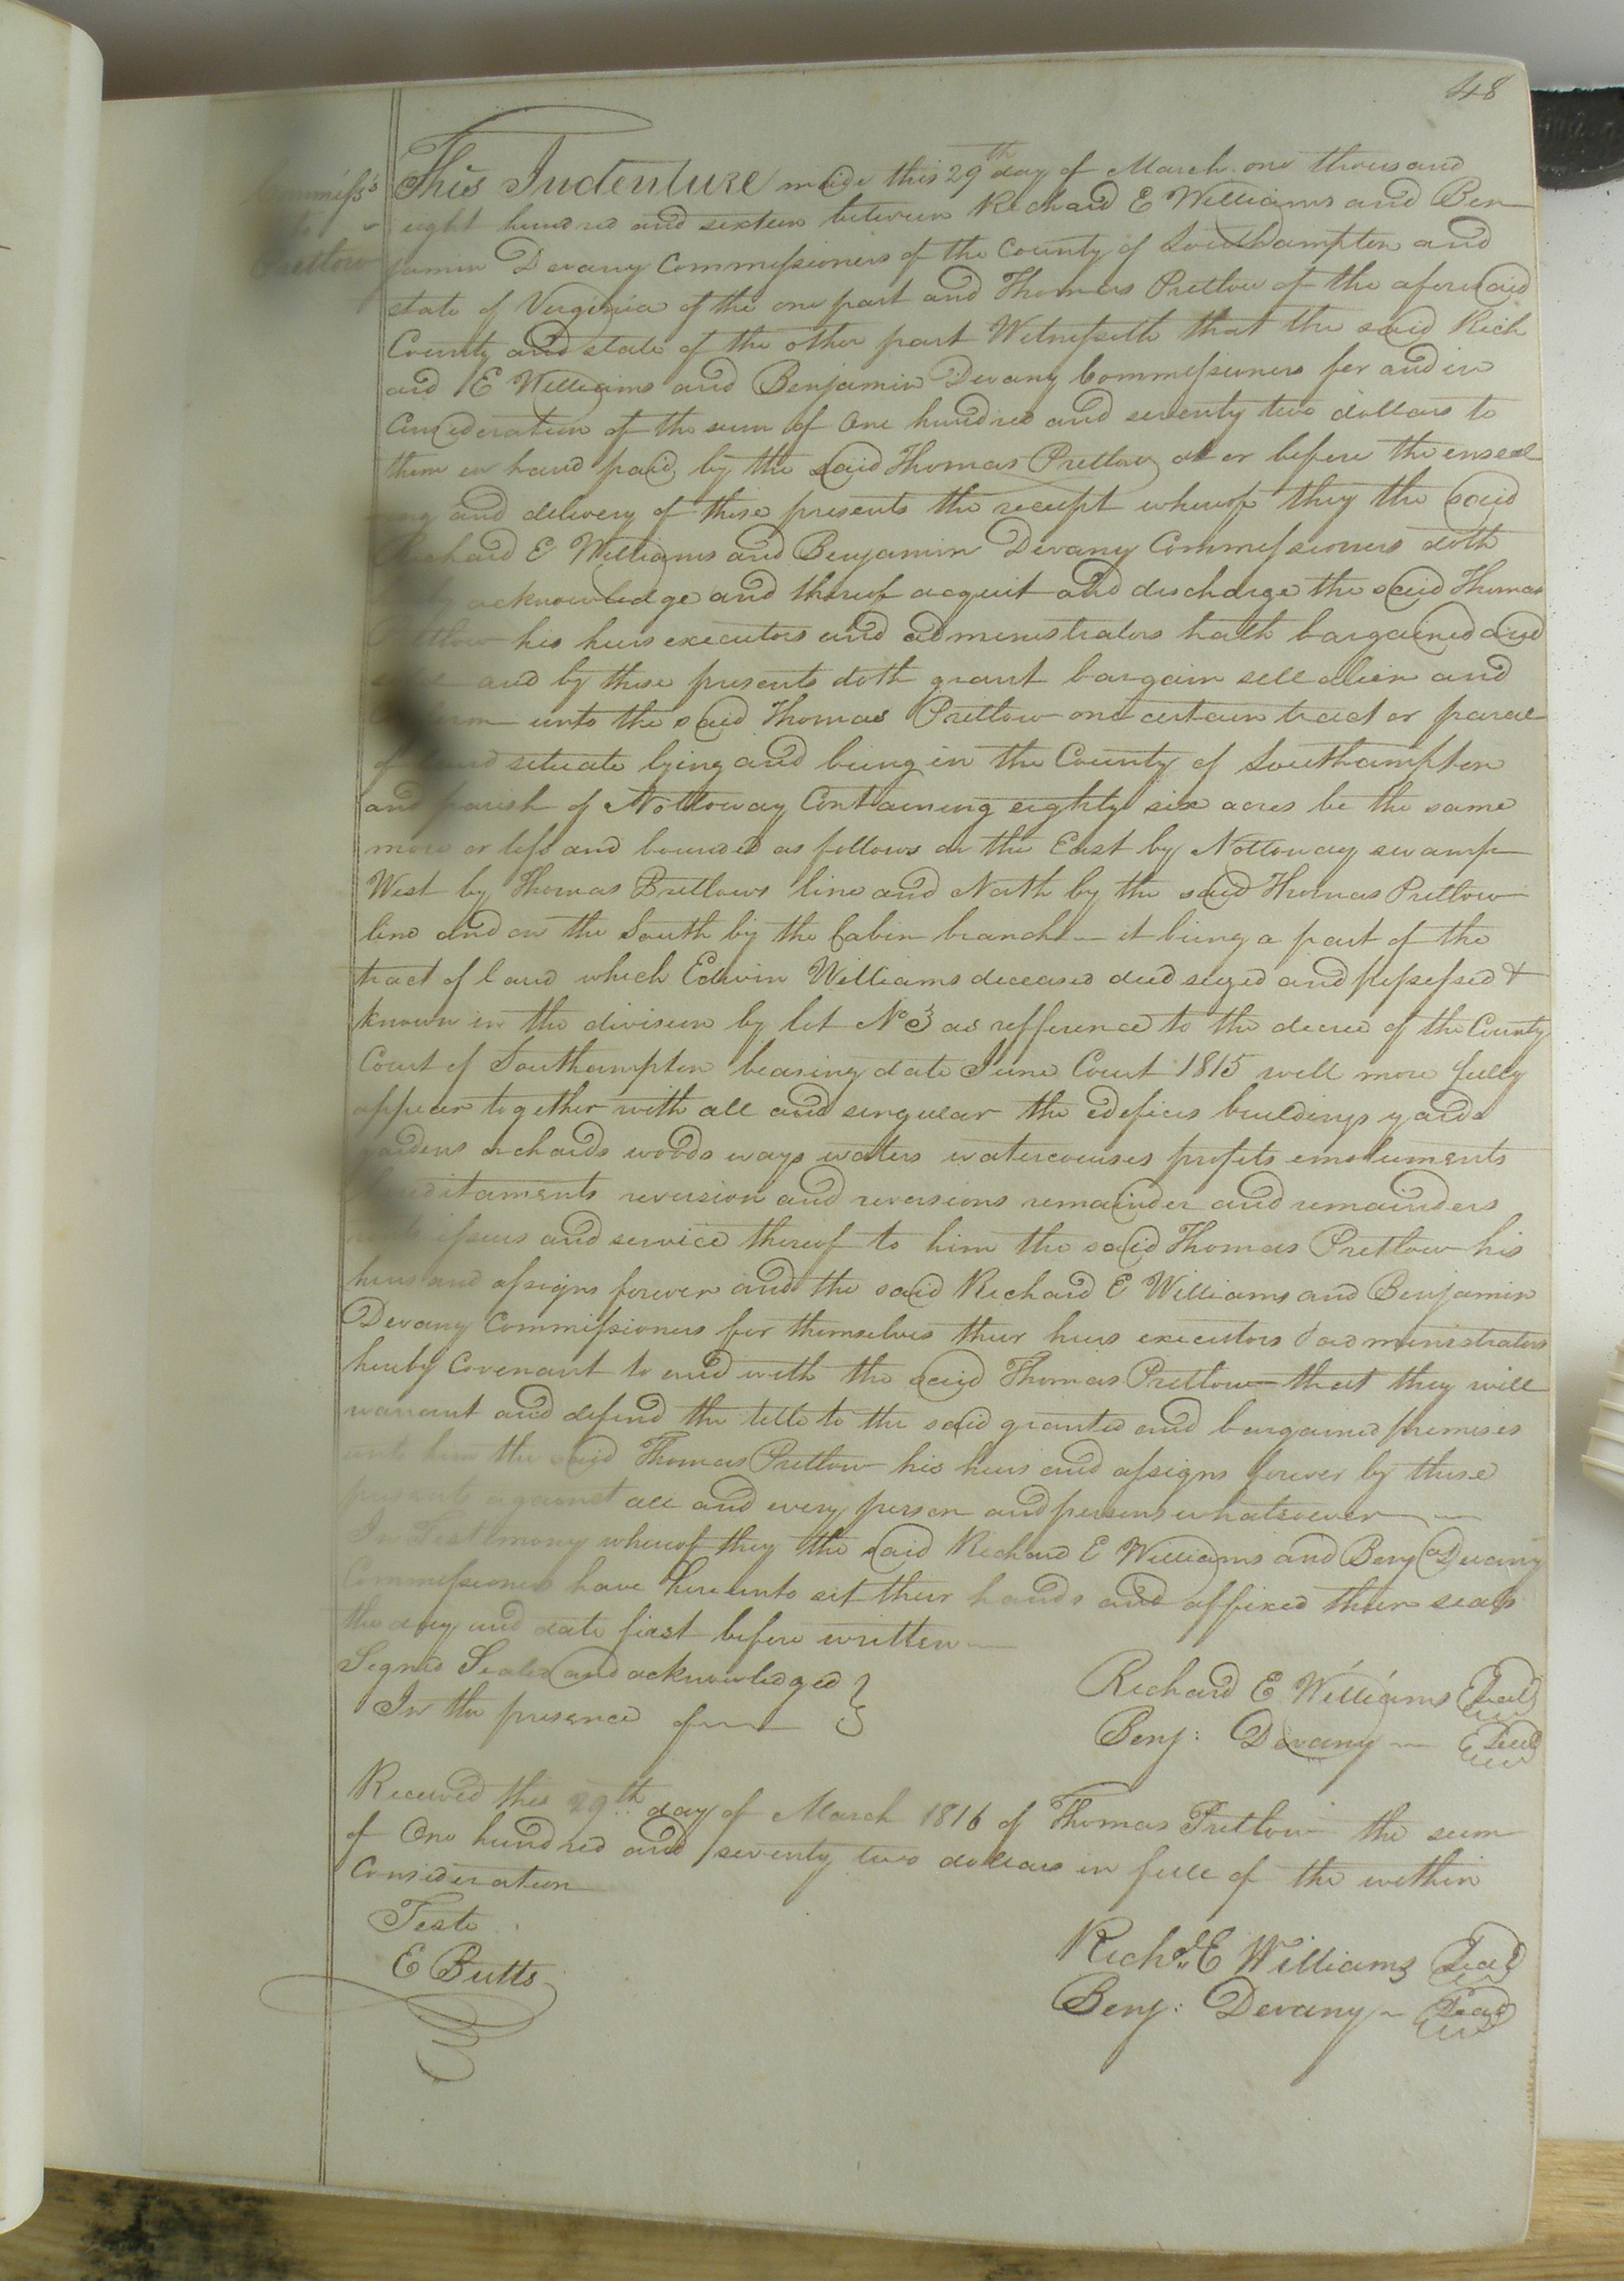 48
This Indenture made this 29th day of March one thousand
eight hundred and sixteen between Richard E Williams and Ben
jamin Devany Commissioners of the County of Southampton and
state of Virginia of the one part and Thomas Pretlow of the aforesaid
County and state of the other part Witnesseth that the said Rich
ard E Williams and Benjamin Devany Commissioners for and in
Consideration of the sum of One hundred and seventy two dollars to
them in hand paid by the said Thomas Pretlow at or before the enseal
ing and delivery of these presents the receipt whereof they the said
Richard E Williams and Benjamin Devany Commissioners doth
acknowledge and thereof acquit and discharge the said Thomas
Pretlow his heirs executors and administrators hath bargained and
and by these presents doth grant bargain sell alien and
unto the said Thomas Pretlow one certain tract or parcel
of land situate lying and being in the County of Southampton
and parish of Nottoway Containing eighty six acres be the same
more or less and bounded as follows on the East by Nottoway swamp
West by Thomas Pretlows line and North by the said Thomas Pretlow
line and on the South by the Cabin branch it being a part of the
tract of land which Edwin Williams deceased died seized and possessed &
known in the division by lot No 3 as refference to the decree of the County
Court of Southampton bearing date June Court 1815 will more fully
appear together with all and singular the edefices buildings yards
gardens orchards woods ways waters watercourses profits emoluments
hereditaments reversion and reversions remainder and remainders
rents issues and service thereof to him the said Thomas Pretlow his
heirs and assigns forever and the said Richard E Williams and Benjamin
Devany Commissioners for themselves their heirs executors & administrators
hereby Covenant to and with the said Thomas Pretlow that they will
warrant and defend the title to the said granted and bargained premises
unto him the said Thomas Pretlow his heirs and assigns forever by these
presents against all and every person and persons whatsoever
In Testimony whereof they the said Richard E Williams and Benj Devany
Commissioners have hereunto set their hands and affixed their seals
the day and date first before written
Signed Sealed and acknowledged }
In the presence of
Richard E Williams Seal
Benj: Devany Seal
Received this 29th day of March 1816 of Thomas Pretlow the sum
of One hundred and seventy two dollars in full of the within
Consideration
Teste
E Butts
Richd E Williams Seal
Benj: Devany Seal